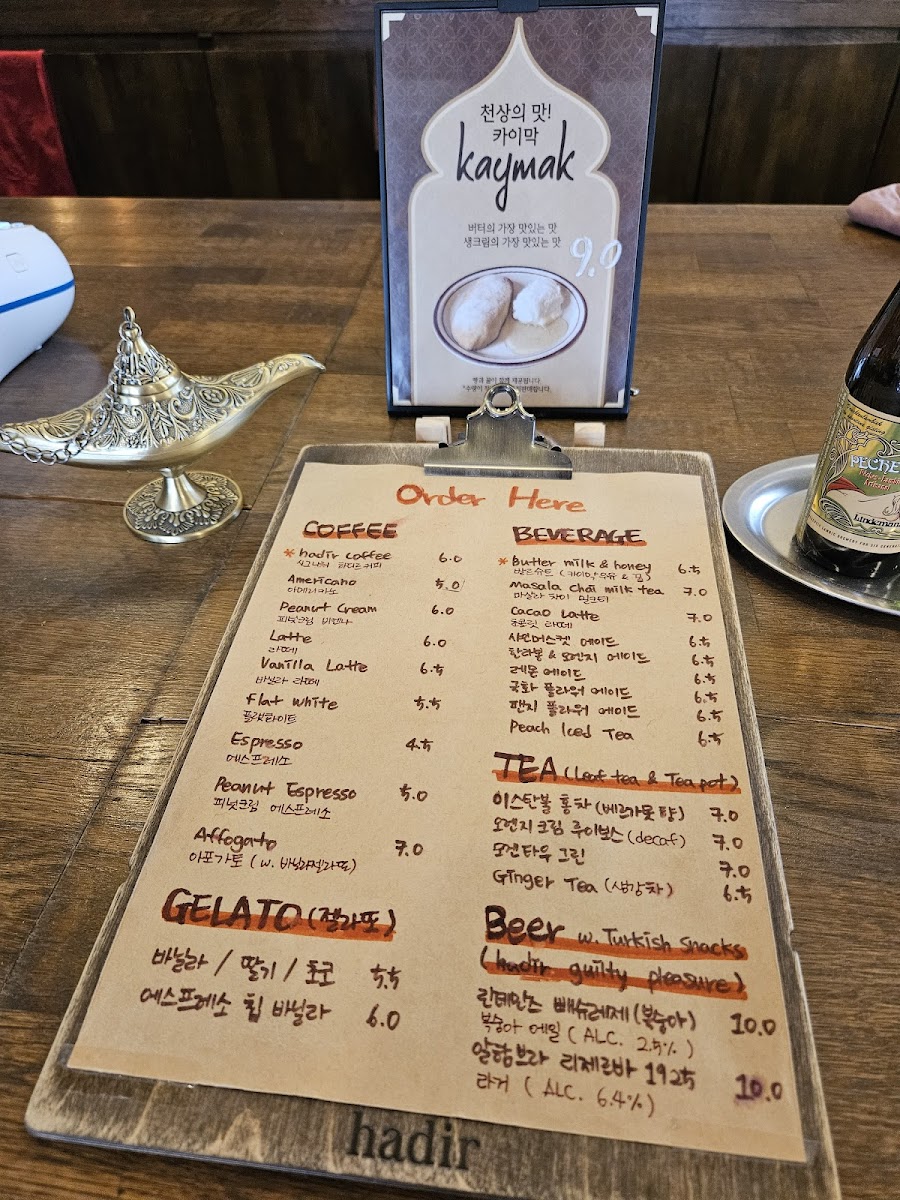 천상의 맛!
카이막
kaymak
버터의 가장 맛있는 맛
생크림의 가장 맛있는 맛
9.0
빵과 꿀이 함께 제공됩니다.
Order Here
COFFEE
* hadir coffee 6.0
시그니처 하디르커피
Americano 5.0
아메리카노
Peanut Cream 6.0
피넛크림 비엔나
Latte 6.0
라떼
Vanilla Latte 6.5
바닐라 라떼
flat white 5.5
플랫화이트
Espresso 4.5
에스프레소
Peanut Espresso 5.0
피넛크림 에스프레소
Affogato 7.0
아포가토 (w. 바닐라젤라또)
GELATO (젤라또)
바닐라 / 딸기 / 초코 5.5
에스프레소 칩 바닐라 6.0
BEVERAGE
* Butter milk & honey 6.5
Masala chai milk tea 7.0
마살라 짜이 밀크티
Cacao Latte 7.0
초콜릿 라떼
샤인머스켓 에이드 6.5
한라봉 & 오렌지 에이드 6.5
레몬 에이드 6.5
국화 플라워 에이드 6.5
팬지 플라워 에이드 6.5
Peach Iced Tea 6.5
TEA (Leaf tea & Tea pot)
이스탄불 홍차 (베르가못 향) 7.0
오렌지 크림 루이보스 (decaf) 7.0
오렌타우 그린 7.0
Ginger Tea (생강차) 6.5
Beer w. Turkish Snacks
(hadir guilty pleasure)
린데만스 빼슈레제 (복숭아) 10.0
복숭아 에일 ( ALC. 2.5% )
알함브라 리제르바 1925 10.0
라거 ( ALC. 6.4% )
hadir
PECHE
Lindemans